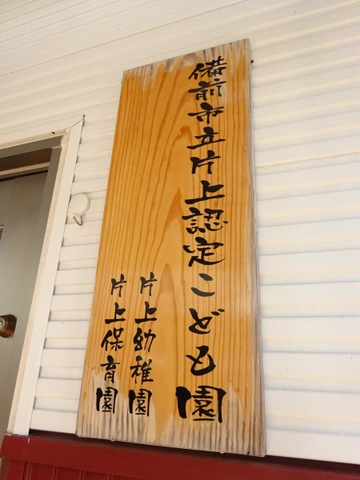 備前市立片上認定こども園
片上幼稚園
片上保育園